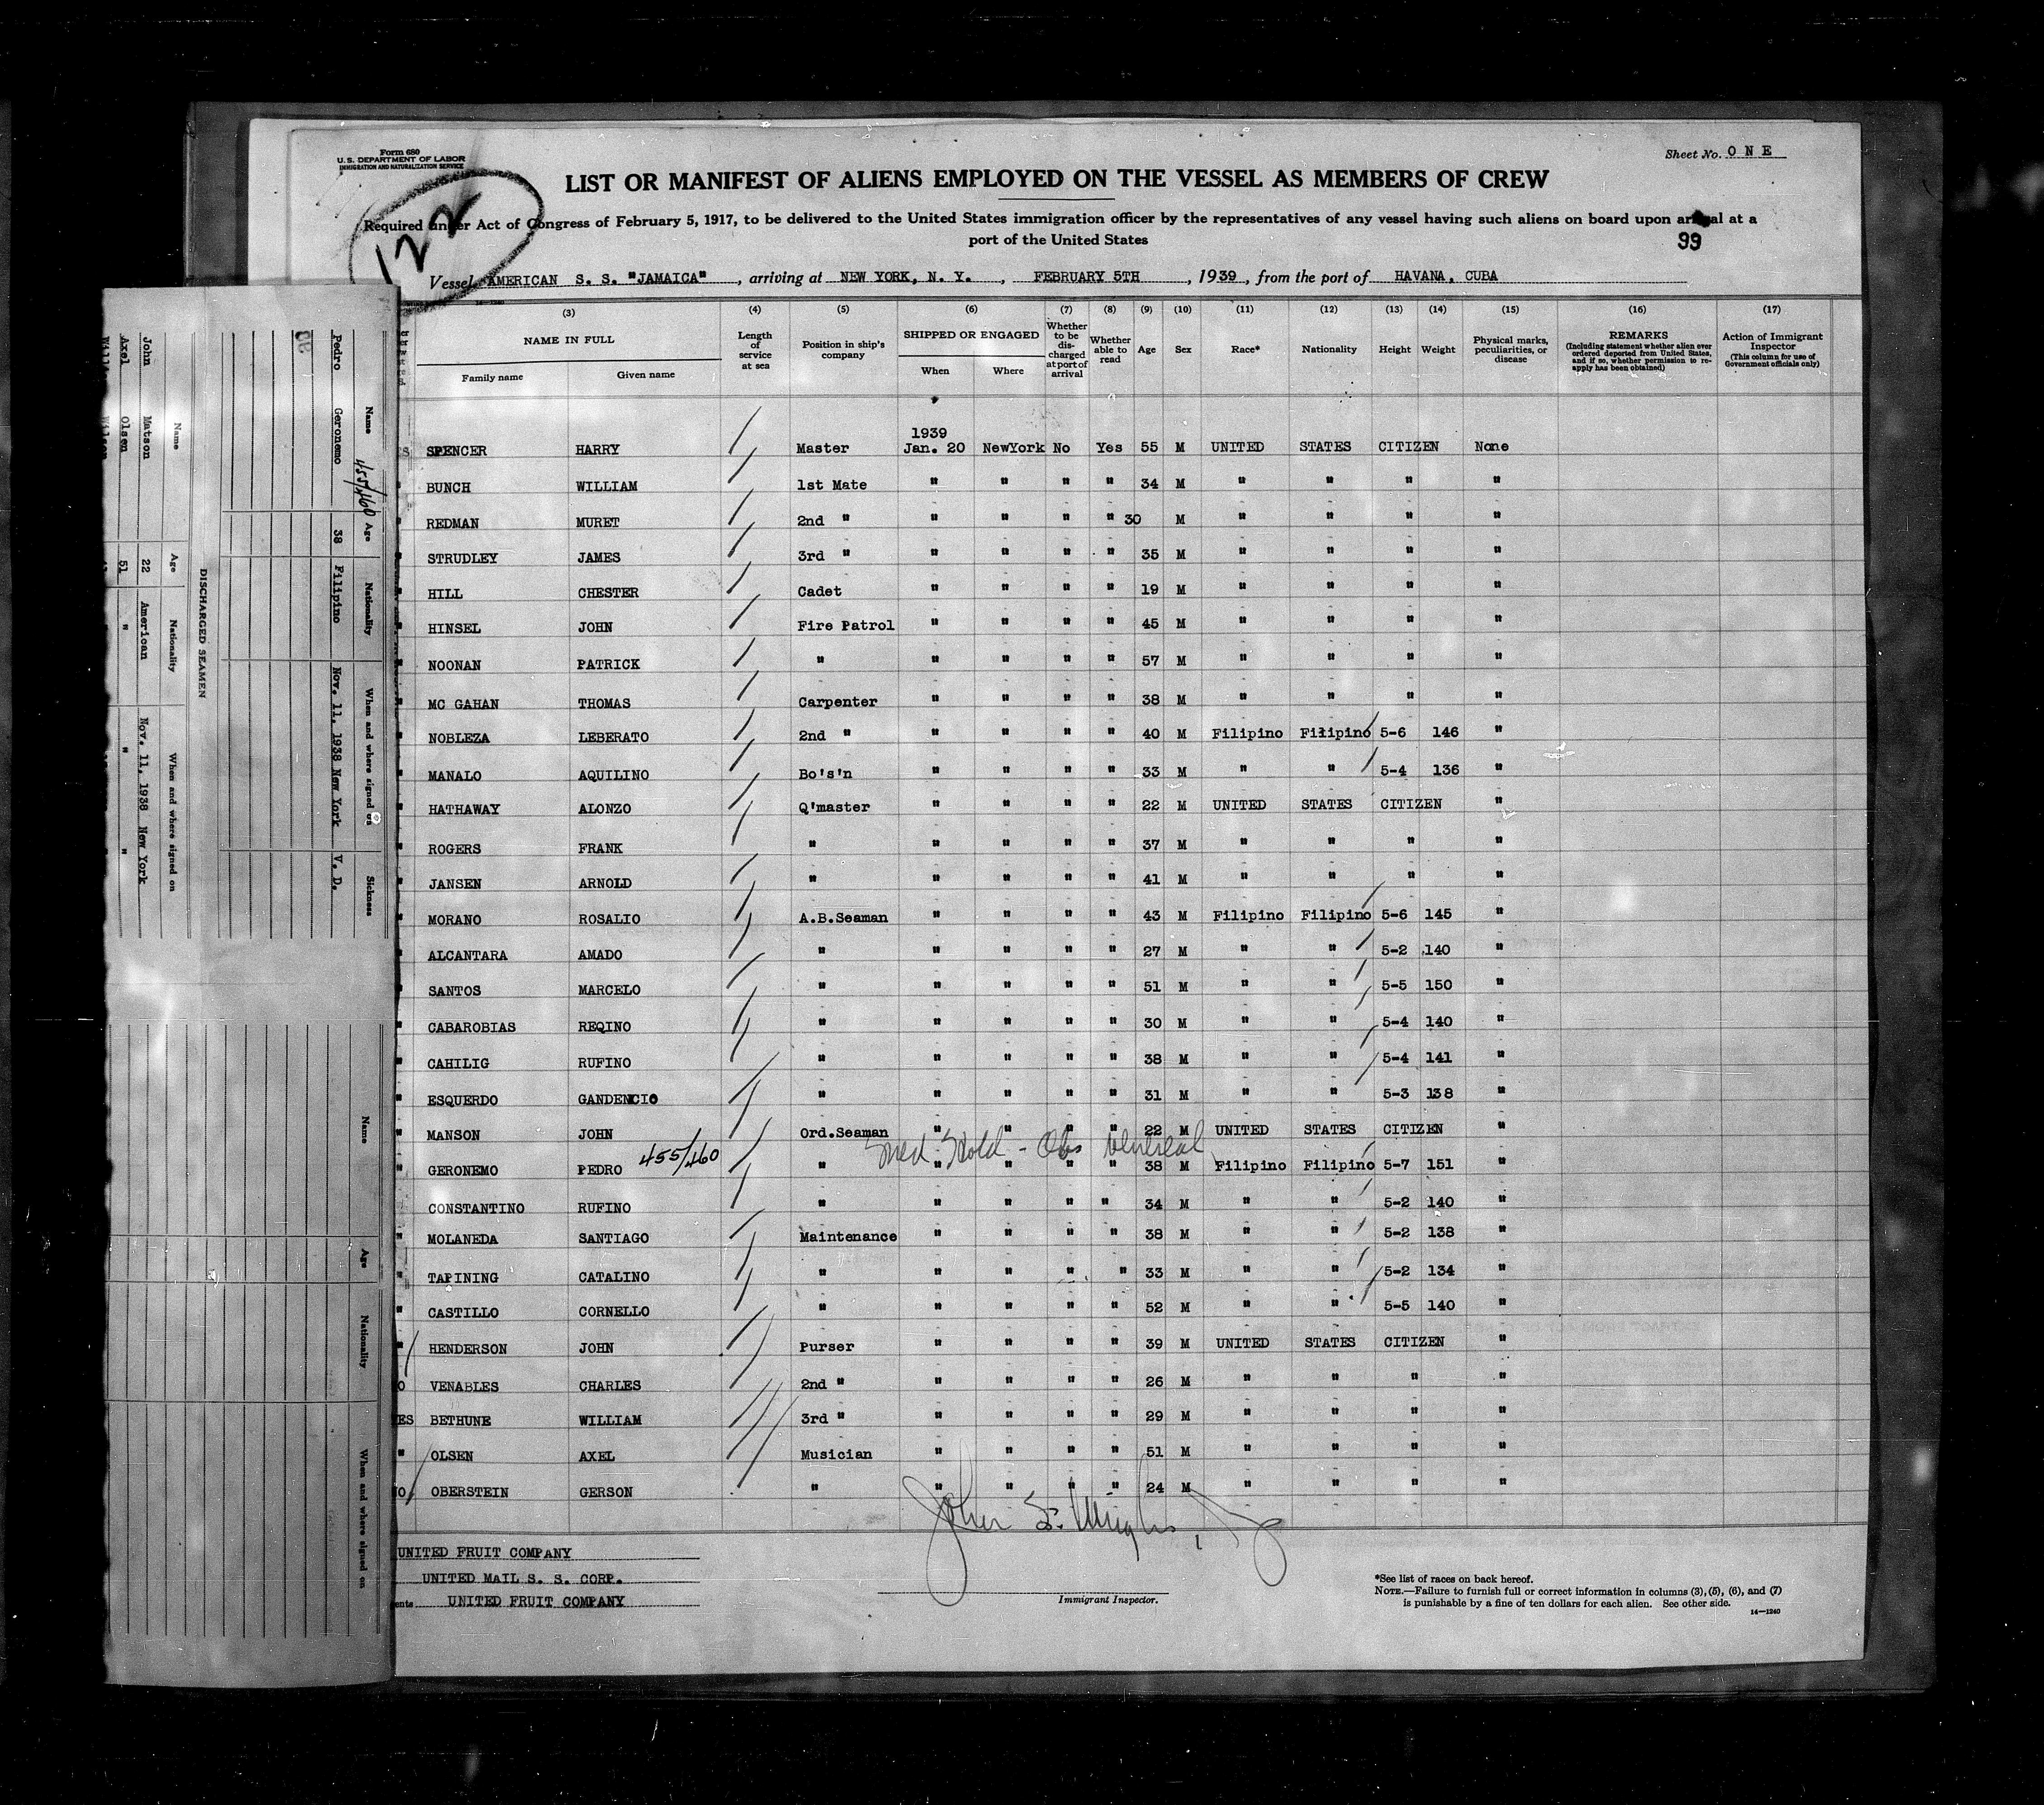 Form 680
U.S. DEPARTMENT OF LABOR
IMMIGRATION AND NATURALIZATION SERVICE
Sheet No. ONE
LIST OR MANIFEST OF ALIENS EMPLOYED ON THE VESSEL AS MEMBERS OF CREW
Required under Act of Congress of February 5, 1917, to be delivered to the United States immigration officer by the representatives of any vessel having such aliens on board upon arrival at a
port of the United States
122
99
Vessel AMERICAN S. S. "JAMAICA", arriving at NEW YORK, N. Y., FEBRUARY 5TH, 1939, from the port of HAVANA, CUBA
(3) (4) (5) (6) (7) (8) (9) (10) (11) (12) (13) (14) (15) (16) (17)
NAME IN FULL
Family name
Given name
Length of service at sea
Position in ship's company
SHIPPED OR ENGAGED
When
Where
Whether to be discharged at port of arrival
Whether able to read
Age
Sex
Race*
Nationality
Height
Weight
Physical marks, peculiarities, or disease
REMARKS
(Including statement whether alien ever ordered deported from United States, and if so, whether permission to reapply has been obtained)
Action of Immigrant Inspector
(This column for use of Government officials only)
1939
SPENCER HARRY Master Jan. 20 NewYork No Yes 55 M UNITED STATES CITIZEN None
" BUNCH WILLIAM 1st Mate " " " " 34 M " " " "
" REDMAN MURET 2nd " " " " " 30 M " " " "
" STRUDLEY JAMES 3rd " " " " " 35 M " " " "
" HILL CHESTER Cadet " " " " 19 M " " " "
" HINSEL JOHN Fire Patrol " " " " 45 M " " " "
" NOONAN PATRICK " " " " " 57 M " " " "
" MC GAHAN THOMAS Carpenter " " " " 38 M " " " "
" NOBLEZA LEBERATO 2nd " " " " " 40 M Filipino Filipino 5-6 146 "
" MANALO AQUILINO Bo's'n " " " " 33 M " " 5-4 136 "
" HATHAWAY ALONZO Q'master " " " " 22 M UNITED STATES CITIZEN "
" ROGERS FRANK " " " " " 37 M " " " "
" JANSEN ARNOLD " " " " " 41 M " " " "
" MORANO ROSALIO A.B.Seaman " " " " 43 M Filipino Filipino 5-6 145 "
" ALCANTARA AMADO " " " " " 27 M " " 5-2 140 "
" SANTOS MARCELO " " " " " 51 M " " 5-5 150 "
" CABAROBIAS REQINO " " " " " 30 M " " 5-4 140 "
" CAHILIG RUFINO " " " " " 38 M " " 5-4 141 "
" ESQUERDO GANDENCIO " " " " " 31 M " " 5-3 138 "
" MANSON JOHN Ord.Seaman " " " " 22 M UNITED STATES CITIZEN "
Med Hold - Obs Venereal
" GERONEMO PEDRO 455/460 " " " " " 38 M Filipino Filipino 5-7 151 "
" CONSTANTINO RUFINO " " " " " 34 M " " 5-2 140 "
" MOLANEDA SANTIAGO Maintenance " " " " 38 M " " 5-2 138 "
" TAPINING CATALINO " " " " " 33 M " " 5-2 134 "
" CASTILLO CORNELLO " " " " " 52 M " " 5-5 140 "
" HENDERSON JOHN Purser " " " " 39 M UNITED STATES CITIZEN "
VENABLES CHARLES 2nd " " " " " 26 M " " " "
ES BETHUNE WILLIAM 3rd " " " " " 29 M " " " "
" OLSEN AXEL Musician " " " " 51 M " " " "
OBERSTEIN GERSON " " " " " 24 M " " " "
UNITED FRUIT COMPANY
UNITED MAIL S. S. CORP.
UNITED FRUIT COMPANY
Immigrant Inspector.
*See list of races on back hereof.
NOTE.—Failure to furnish full or correct information in columns (3), (5), (6), and (7)
is punishable by a fine of ten dollars for each alien. See other side.
14—1240
Name Age Nationality When and where signed on Sickness
455/460
Pedro Geronemo 38 Filipino Nov. 11, 1938 New York V. D.
DISCHARGED SEAMEN
Name Age Nationality When and where signed on
John Matson 22 American Nov. 11, 1938 New York
Axel Olsen 51 " " "
Name Age Nationality When and where signed on